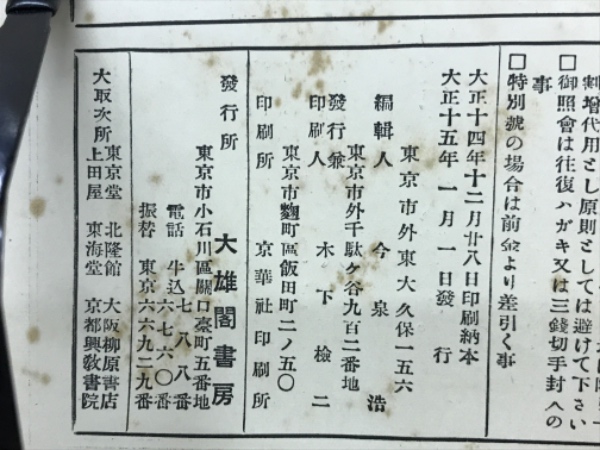 割增代用とし原則としては避けて下さい
□御照會は往復ハガキ又は三錢切手封入の
事
□特別號の場合は前金より差引く事
大正十四年十二月廿八日印刷納本
大正十五年一月一日發行
東京市外東大久保一五六
編輯人 今泉浩
東京市外千駄ケ谷九百二番地
發行兼印刷人 木下檢二
東京市麴町區飯田町二ノ五〇
印刷所 京華社印刷所
發行所 大雄閣書房
東京市小石川區關口臺町五番地
電話 牛込 七八八番
六七六〇番
振替 東京六六九二九番
大取次所 東京堂 北隆館 大阪柳原書店
上田屋 東海堂 京都興敎書院